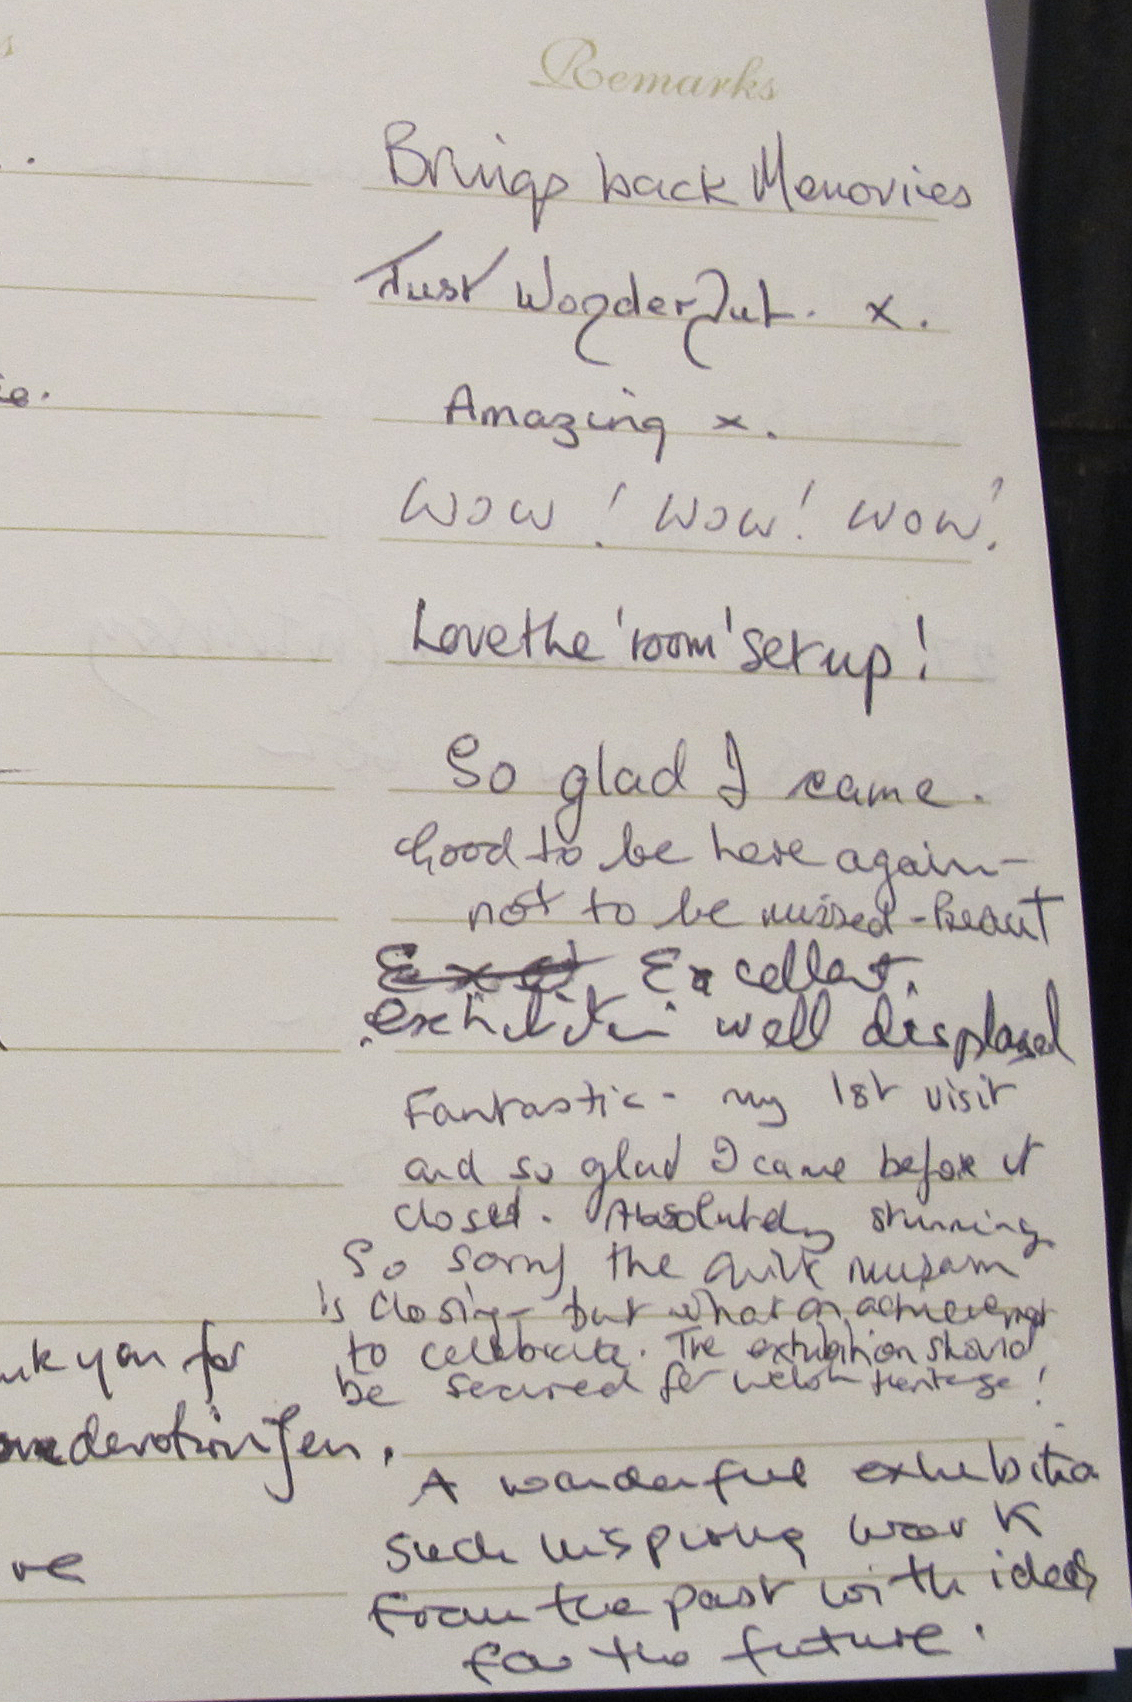 Remarks
Brings back Memories
Just Wonderful. x.
Amazing x.
WOW! WOW! WOW!
Love the 'room' set up!
So glad I came.
Good to be here again-
not to be missed - Beaut
Excellent.
exhibition well displayed
Fantastic - my 1st visit
and so glad I came before it
closed. Absolutely stunning
So sorry the quilt museum
is closing - but what an achievement
to celebrate. The exhibition should
you for
be secured for Welsh Heritage!
devotion Jen.
A wonderful exhibition
such inspiring work
from the past with ideas
for the future.